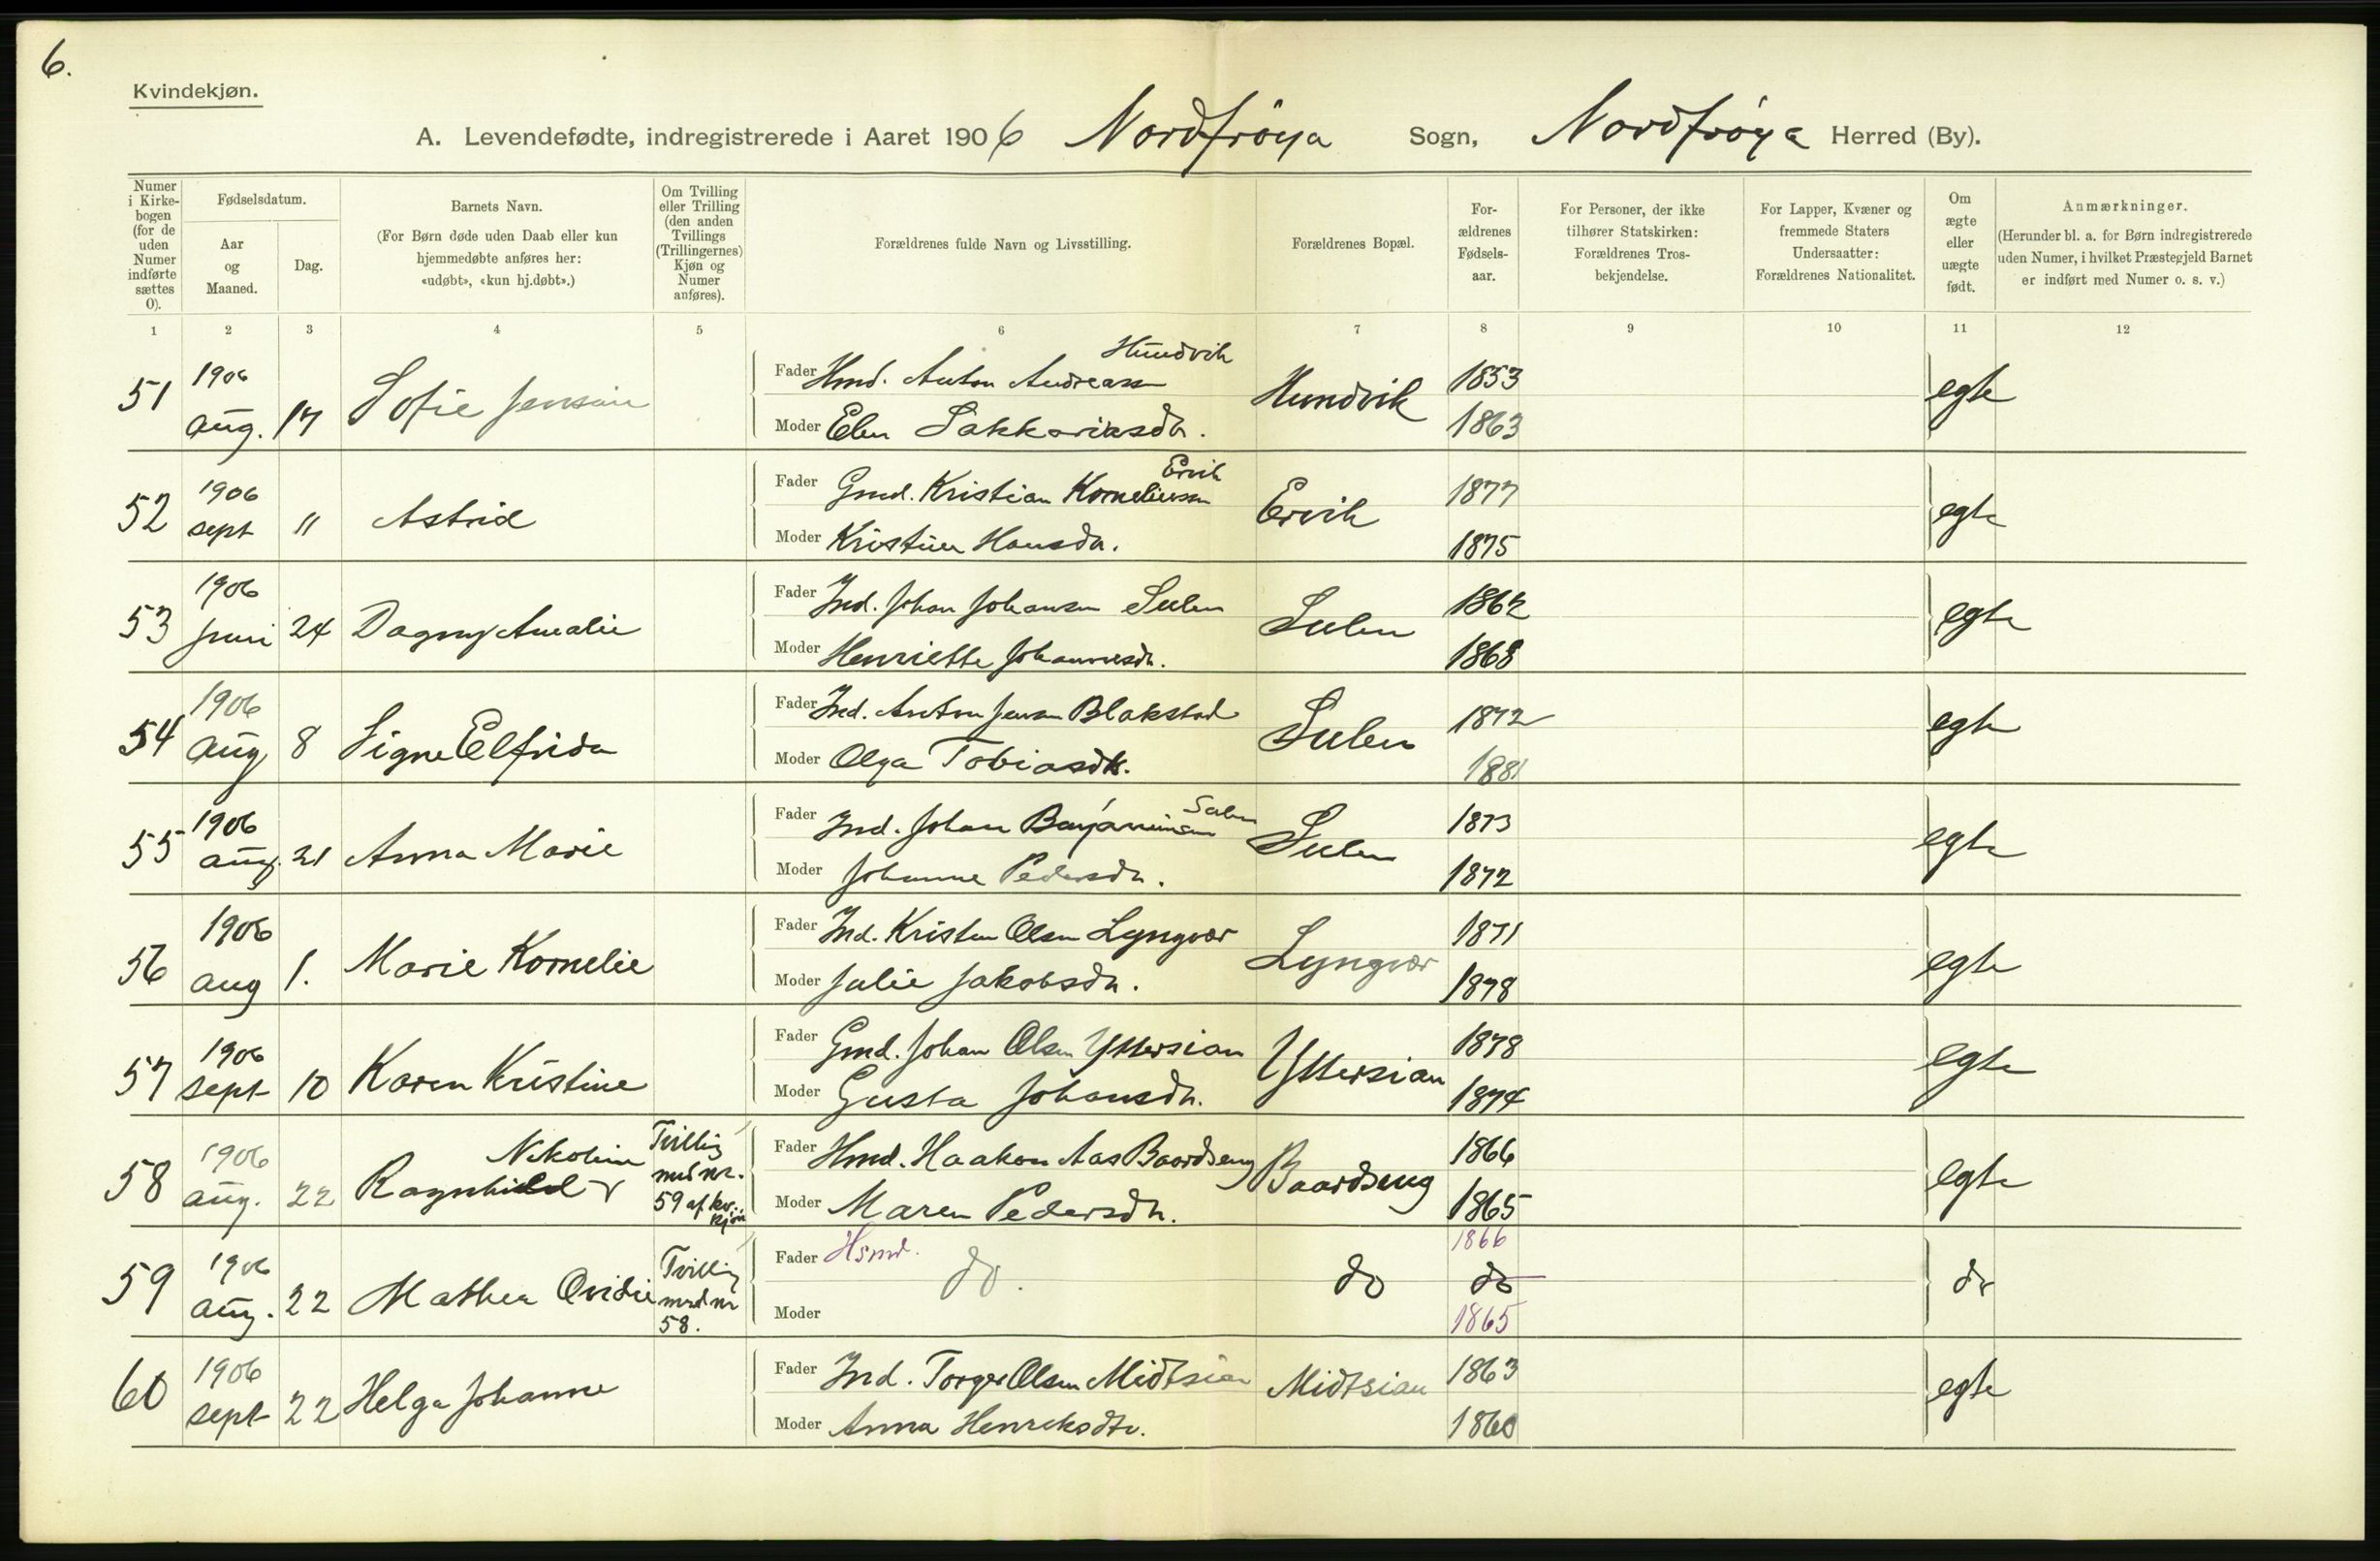 6.
Kvindekjøn.
A. Levendefødte, indregistrerede i Aaret 1906 Nordfrøya Sogn, Nordfrøya Herred (By).
Numer i Kirkebogen (for de uden Numer indførte sættes 0).
Fødselsdatum.
Aar og Maaned.
Dag.
Barnets Navn.
(For Børn døde uden Daab eller kun hjemmedøbte anføres her: «udøbt», «kun hj.døbt».)
Om Tvilling eller Trilling (den anden Tvillings (Trillingernes) Kjøn og Numer anføres).
Forældrenes fulde Navn og Livsstilling.
Forældrenes Bopæl.
For-ældrenes Fødsels-aar.
For Personer, der ikke tilhører Statskirken: Forældrenes Tros-bekjendelse.
For Lapper, Kvæner og fremmede Staters Undersaatter: Forældrenes Nationalitet.
Om ægte eller uægte født.
Anmærkninger.
(Herunder bl. a. for Børn indregistrerede uden Numer, i hvilket Præstegjeld Barnet er indført med Numer o. s. v.)
1 2 3 4 5 6 7 8 9 10 11 12
51 1906 aug. 17 Sofie Jensine
Fader Hmd. Anton Andreassen Hundvik Hundvik 1853 egte
Moder Elen Sakkariasdtr. 1863
52 1906 sept 11 Astrid
Fader Gmd. Kristian Korneliussen Ervik Ervik 1877 egte
Moder Kristine Hansdtr. 1875
53 1906 juni 24 Dagny Amalie
Fader Ind. Johan Johansen Sulen Sulen 1862 egte
Moder Henriette Johannesdtr. 1868
54 1906 aug 8 Signe Elfrida
Fader Ind. Anton Jensen Blakstad Sulen 1872 egte
Moder Olga Tobiasdtr. 1881
55 1906 aug. 21 Anna Marie
Fader Ind. Johan Benjaminsen Sulen Sulen 1873 egte
Moder Johanne Pedersdtr. 1872
56 1906 aug 1. Marie Kornelie
Fader Ind. Kristen Olsen Lyngvær Lyngvær 1871 egte
Moder Julie Jakobsdtr. 1878
57 1906 sept 10 Karen Kristine
Fader Gmd. Johan Olsen Yttersian Yttersian 1878 egte
Moder Gusta Johansdtr. 1874
58 1906 aug. 22 Ragnhild Nikoline Tvilling med nr. 59 af kv.kjøn
Fader Hmd. Haakon Aas Baardseng Baardseng 1866 egte
Moder Maren Pedersdtr. 1865
59 1906 aug. 22 Mathea Ovidie Tvilling med nr 58.
Fader Hsmd. do. do 1866 do do
Moder 1865
60 1906 sept 22 Helga Johanne
Fader Ind. Torger Olsen Midtsian Midtsian 1863 egte
Moder Anna Henriksdtr. 1860